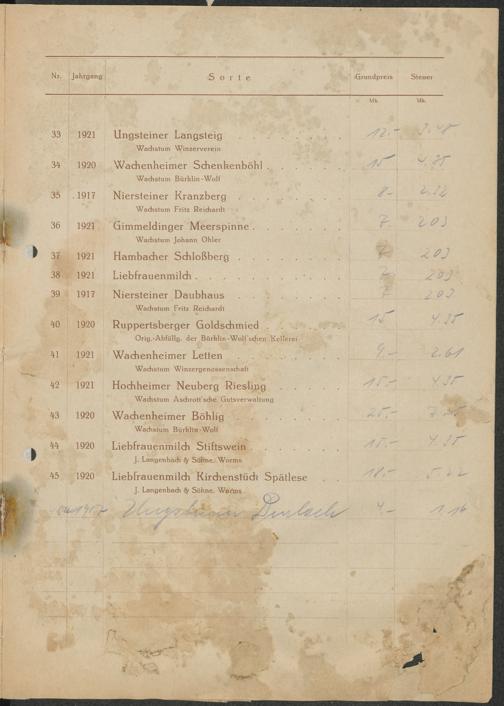 Nr. Jahrgang Sorte Grundpreis Steuer
Mk. Mk.
33 1921 Ungsteiner Langsteig 12.- 3.48
Wachstum Winzerverein
34 1920 Wachenheimer Schenkenböhl 15 4.35
Wachstum Bürklin-Wolf
35 1917 Niersteiner Kranzberg 8.- 2.32
Wachstum Fritz Reichardt
36 1921 Gimmeldinger Meerspinne 7 203
Wachstum Johann Ohler
37 1921 Hambacher Schloßberg 7 203
38 1921 Liebfrauenmilch 7 203
39 1917 Niersteiner Daubhaus 7 203
Wachstum Fritz Reichardt
40 1920 Ruppertsberger Goldschmied 15 4.35
Orig.-Abfüllg. der Bürklin-Wolf'schen Kellerei
41 1921 Wachenheimer Letten 9.- 2.61
Wachstum Winzergenossenschaft
42 1921 Hochheimer Neuberg Riesling 15.- 4.35
Wachstum Aschrott'sche Gutsverwaltung
43 1920 Wachenheimer Böhlig 25.-
Wachstum Bürklin-Wolf
44 1920 Liebfrauenmilch Stiftswein 15.- 4.35
J. Langenbach & Söhne, Worms
45 1920 Liebfrauenmilch Kirchenstück Spätlese 18.- 5.22
J. Langenbach & Söhne, Worms
4.- 1.16